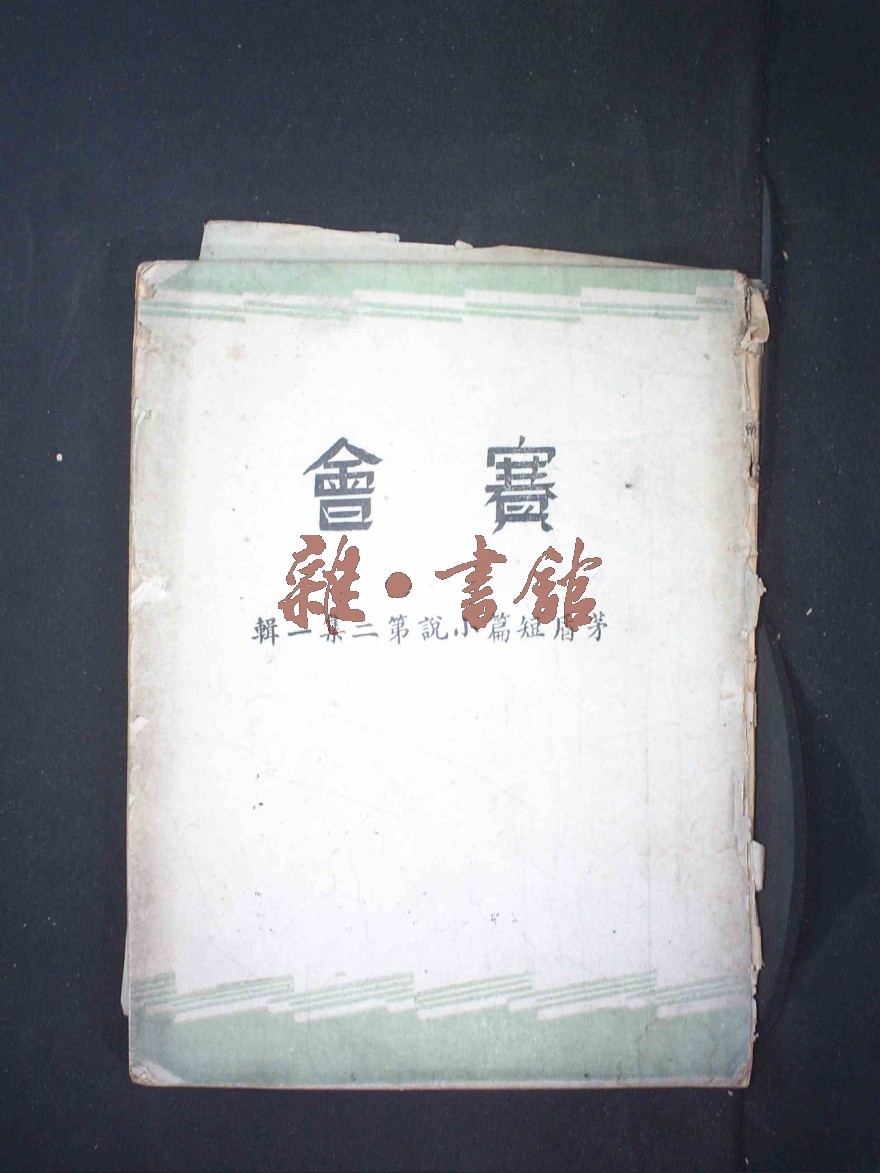 賽會
雜·書館
茅盾短篇小說第二集一輯